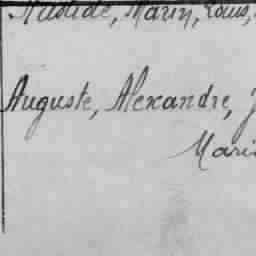 Marin, Louis,
Auguste, Alexandre, J
Mari